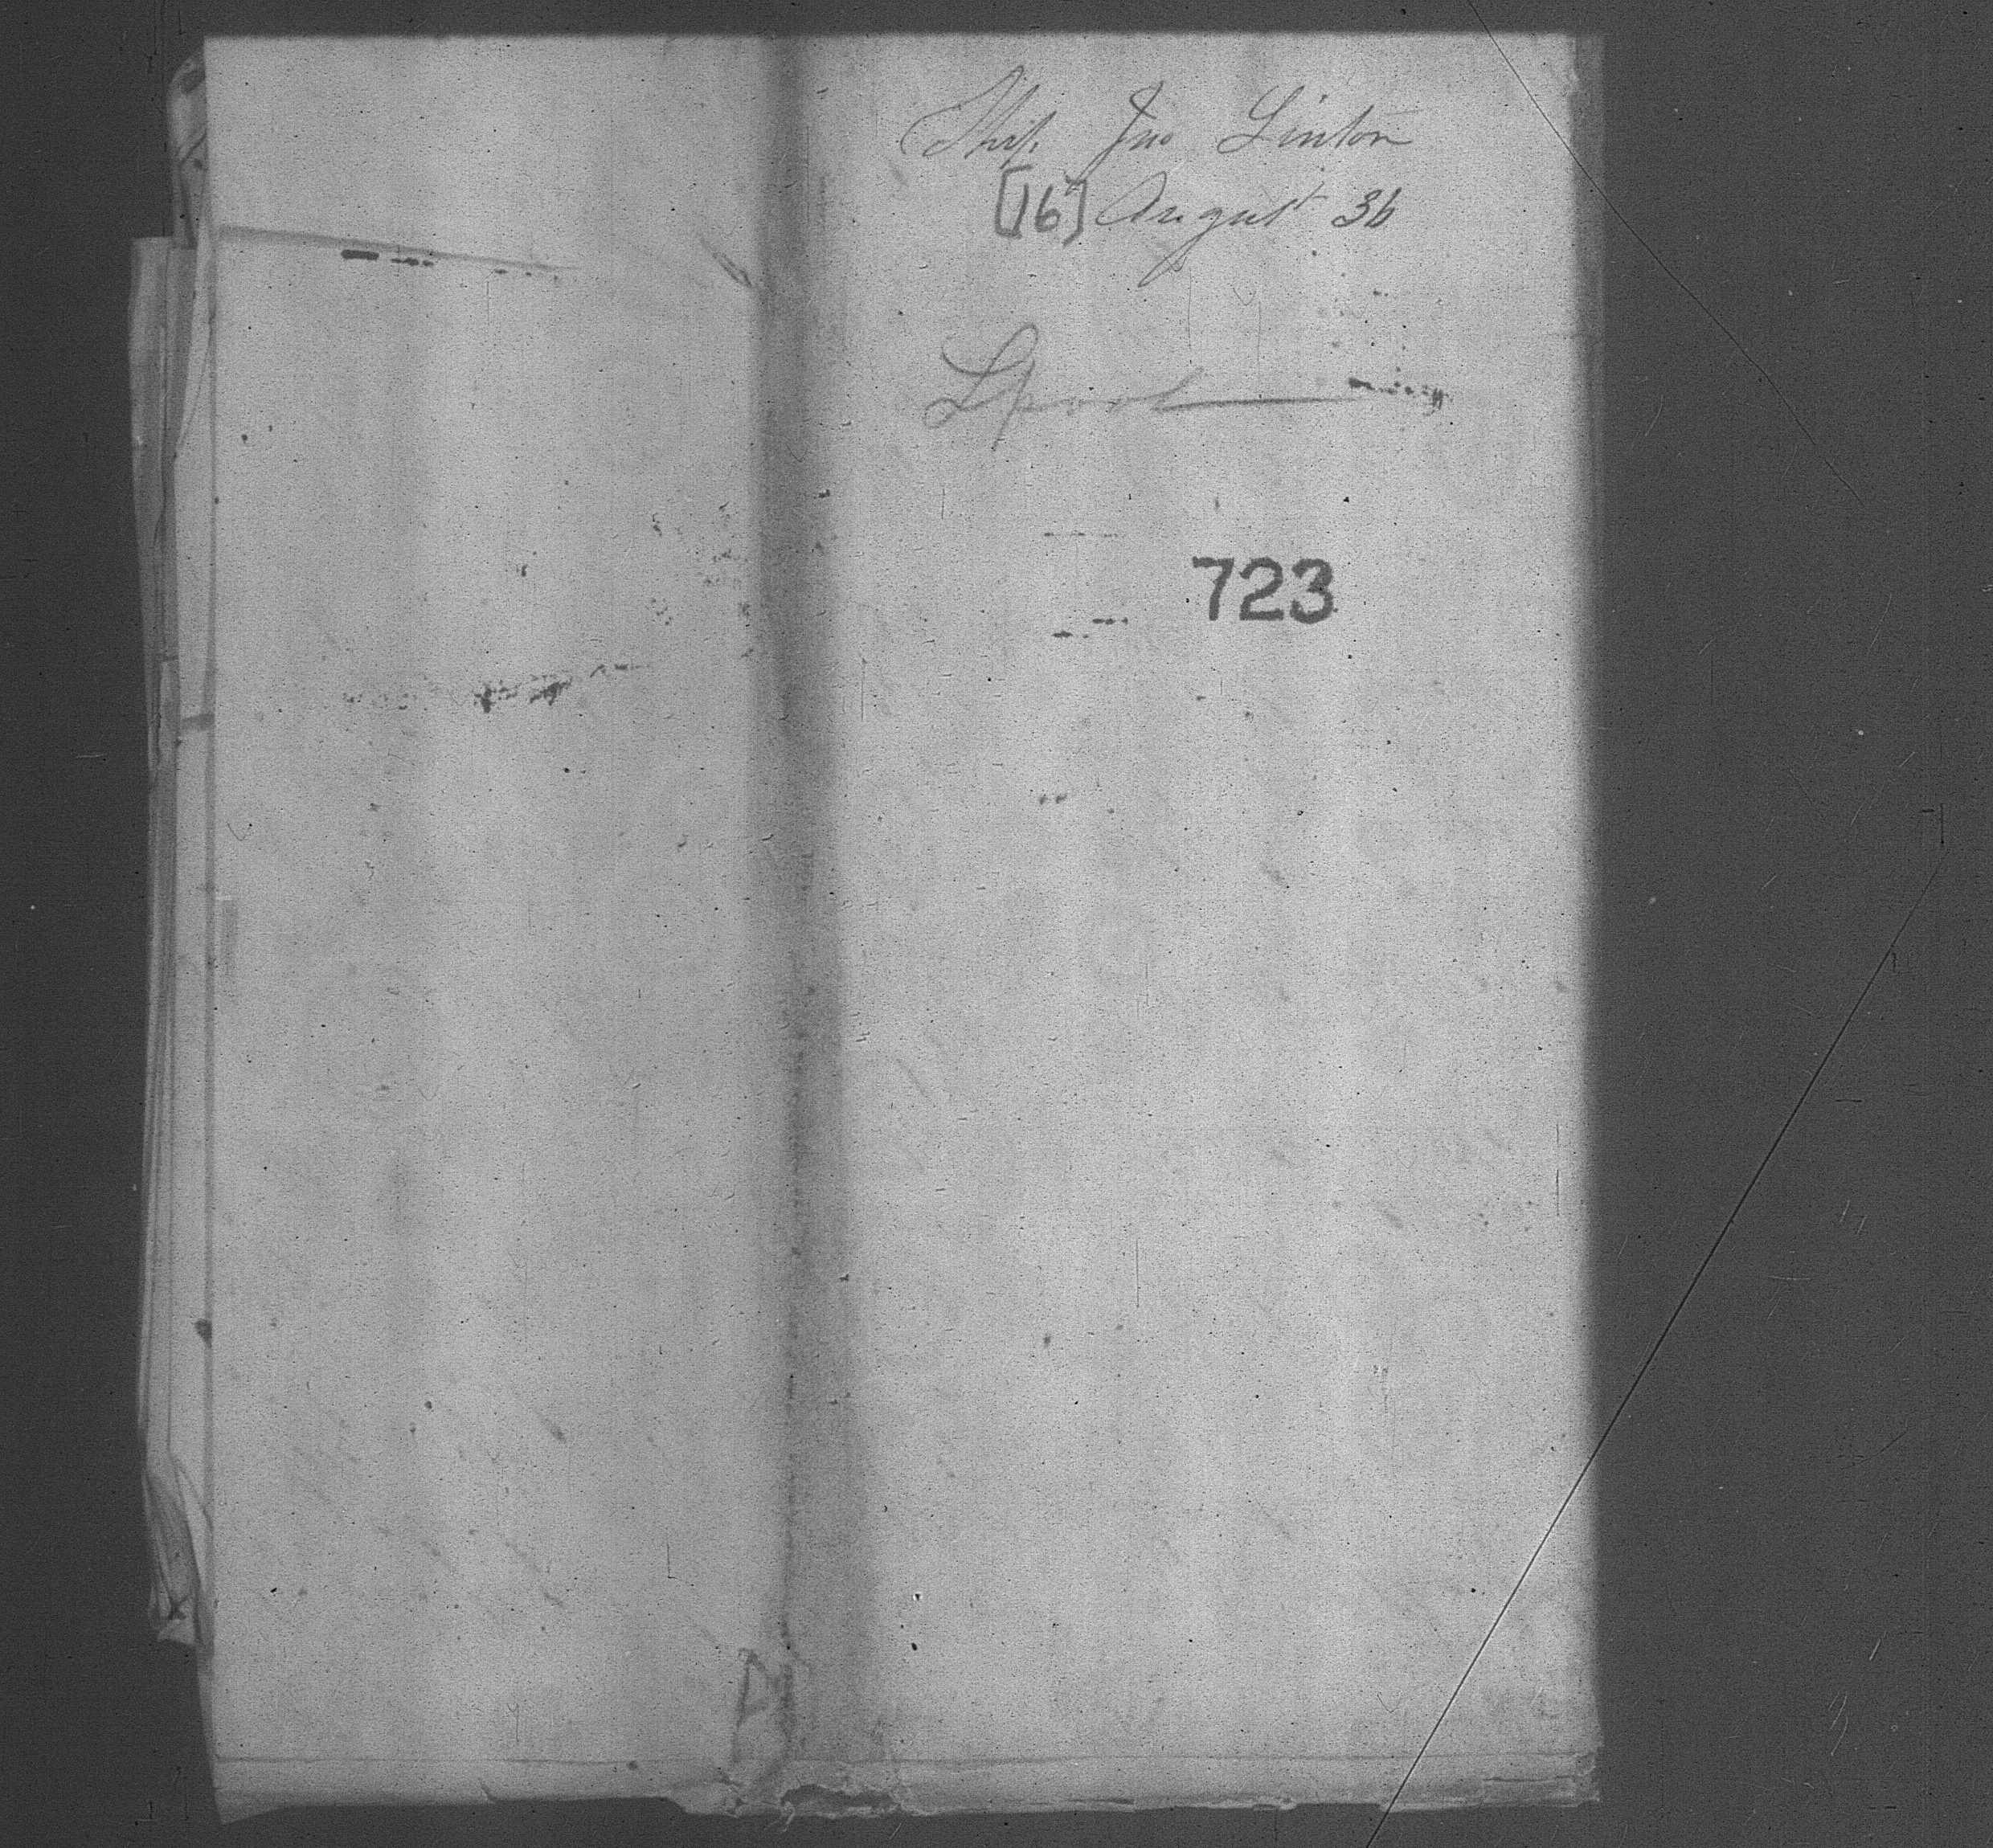 Ship Jno Linton
[16] August 36
Lpool
723